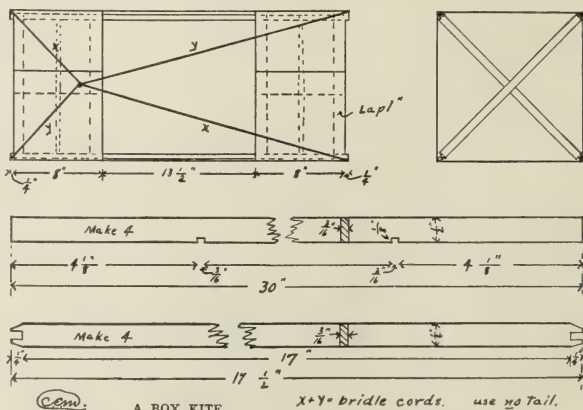 x y
y x
Lap 1"
1/4" 8" 13 1/2" 8" 1/4"
Make 4 3/16" 1/8" 1/2"
4 1/8" 3/16" 3/16" 4 1/8"
30"
Make 4 3/16" 1/2"
1/4" 17" 1/4"
17 1/2"
cem. A BOX KITE X+Y= bridle cords. use no Tail.